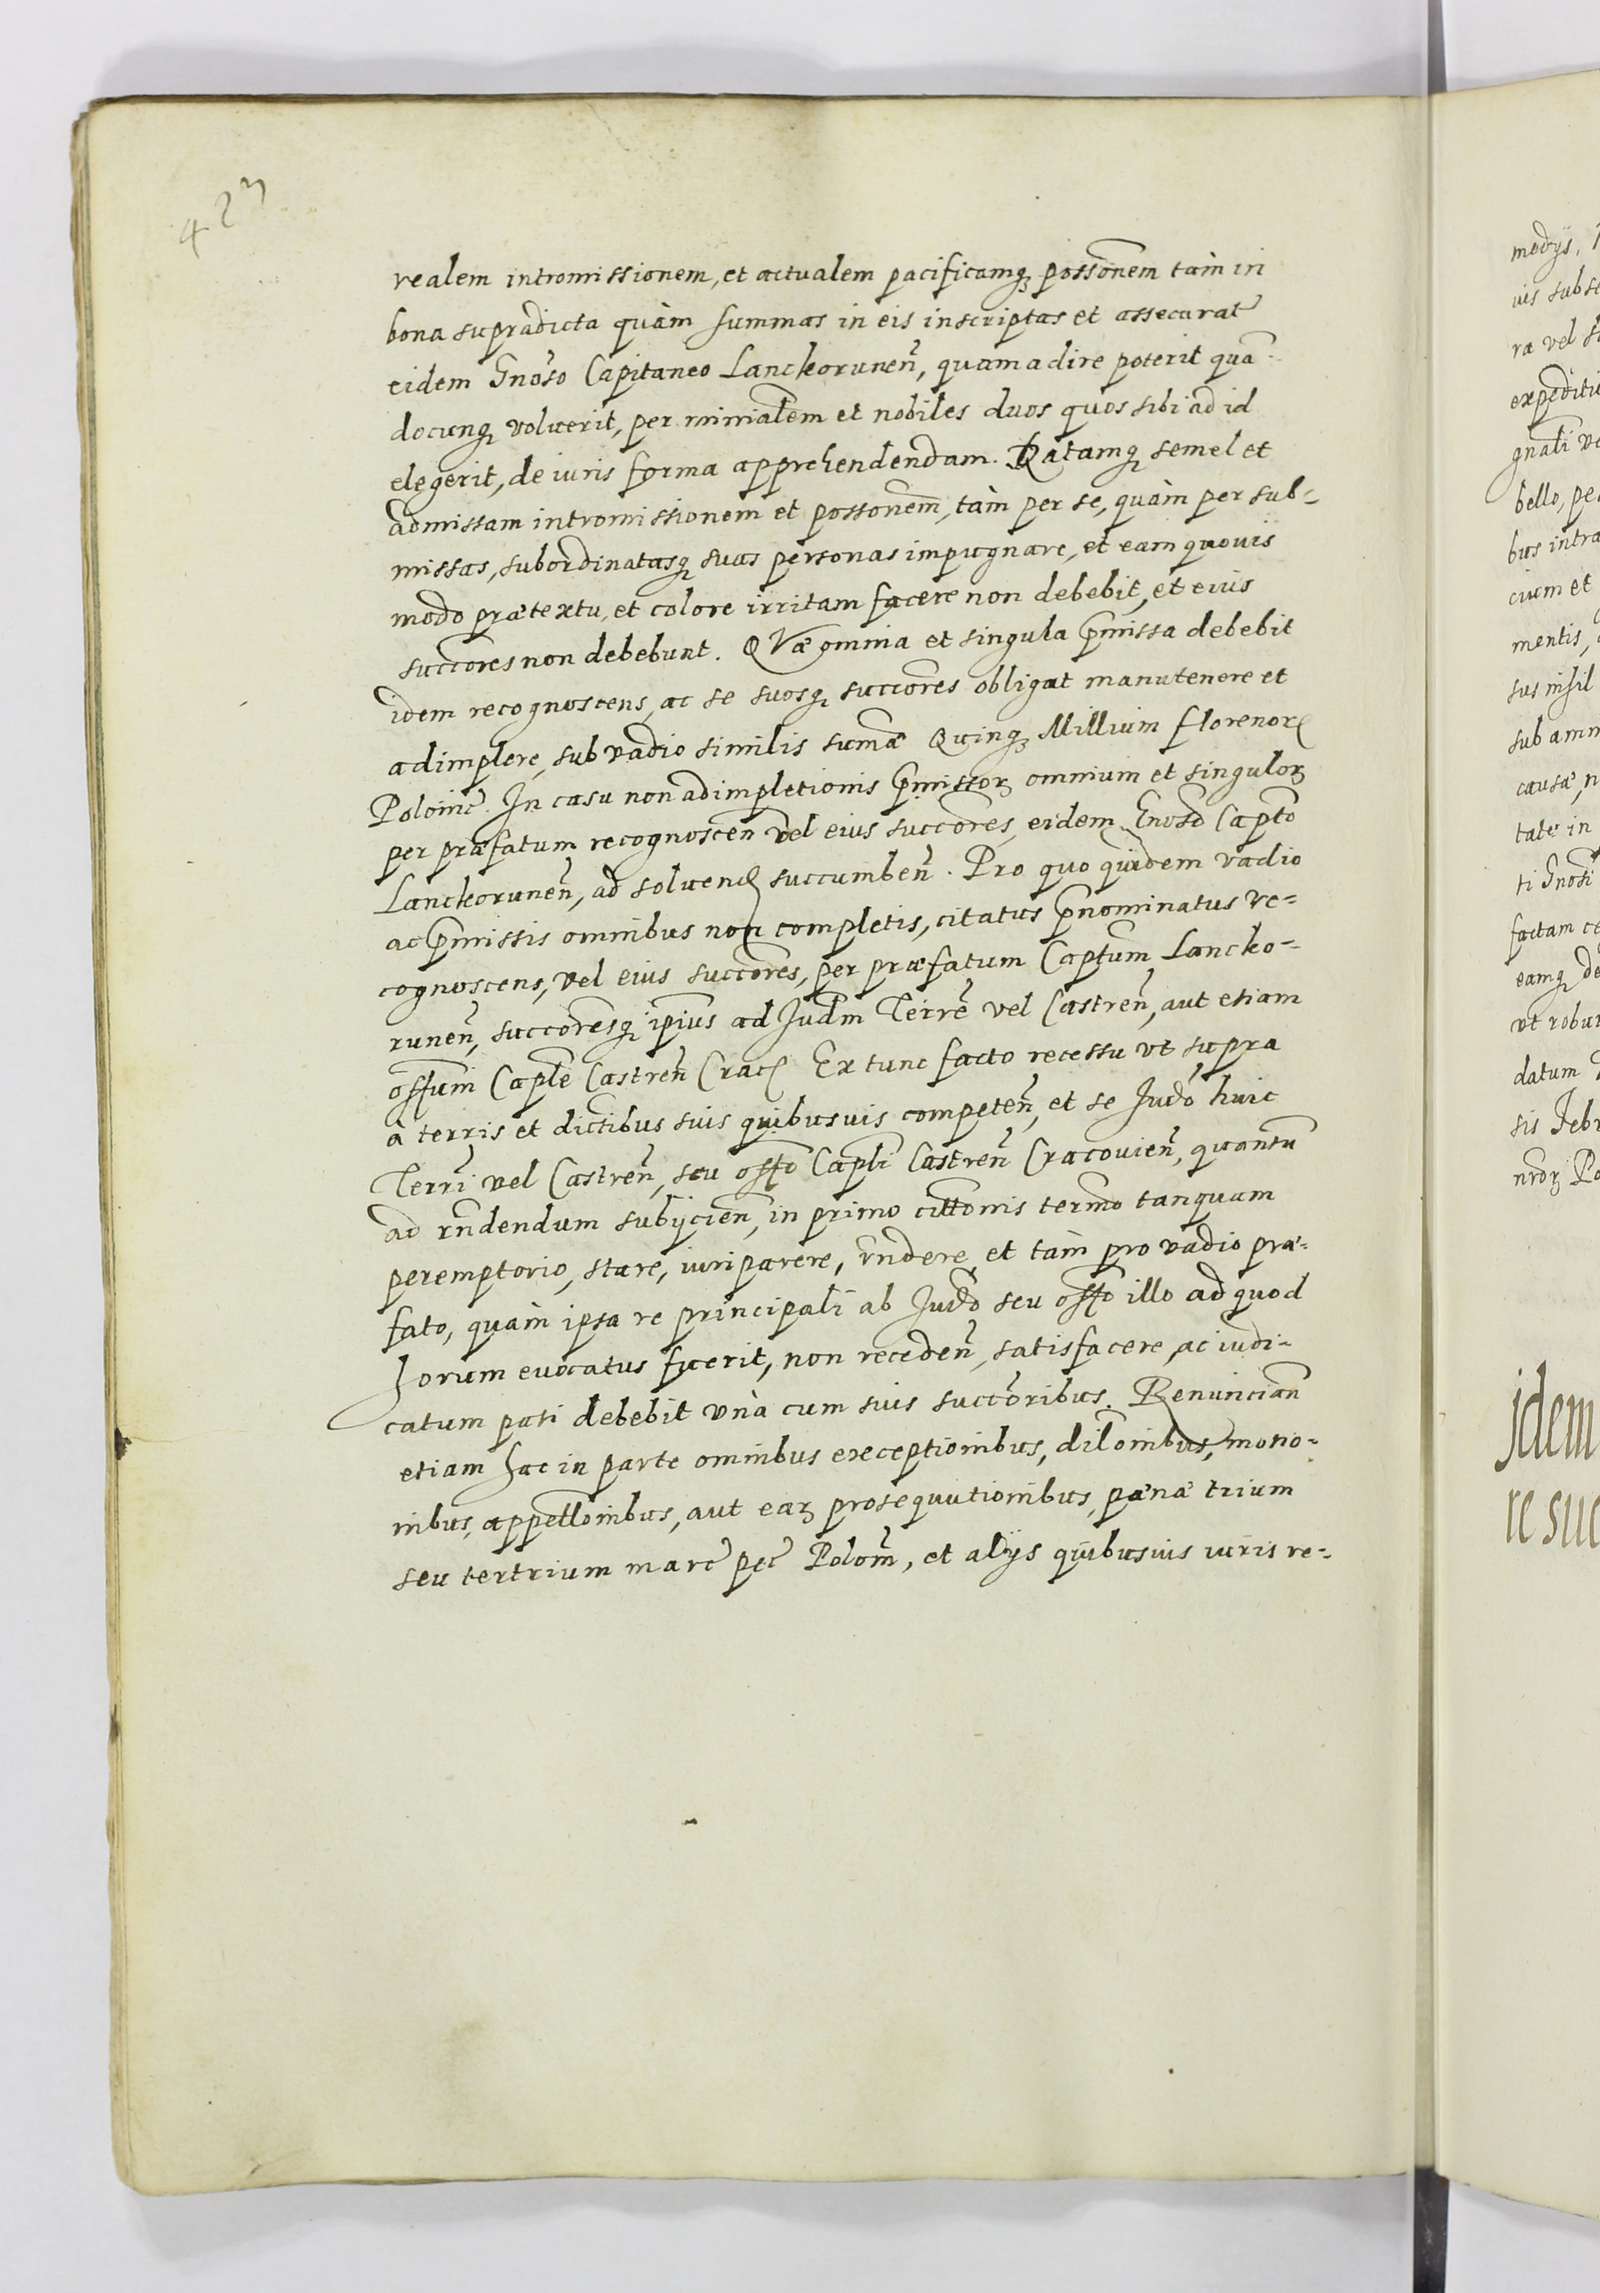 423
realem intromissionem, et actualem pacificamq; possonem tàm in
bona supradicta quàm summas in eis inscriptas et assecurat
eidem Gnoso Capitaneo Lanckorunen, quam adire poterit quan-
docunq; voluerit, per minialem et nobiles duos quos sibi ad id
elegerit, de iuris forma apprehendendam. Datamq; semel et
admissam intromissionem et possonem, tàm per se, quàm per sub-
missas, subordinatasq; suas personas impugnare, et eam quovis
modo prætextu, et colore irritam facere non debebit, et eius
succores non debebunt. QVæ omnia et singula pmissa debebit
idem recognoscens, ac se suosq; succores obligat manutenere et
adimplere, sub vadio similis sumæ Quinq; Millium florenor
Polonic. In casu non adimpletionis pmissor omnium et singulor
per præfatum recognoscen vel eius succores, eidem Gnoso Capto
Lanckorunen, ad solvend succumben. Pro quo quidem vadio
ac pmissis omnibus non completis, citatus pnominatus re-
cognoscens, vel eius succores, per præfatum Captum Lancko-
runen, succoresq; ipius ad Judm Terre vel Castren, aut etiam
offum Caple Castren Crac Ex tunc facto recessu vt supra
à terris et dictibus suis quibusvis competen, et se Judo huic
Terri vel Castren, seu offo Capli Castren Cracovien, quantu
ad rndendum subijcien, in primo cittonis termo tanquam
peremptorio, stare, iuri parere, rndere, et tàm pro vadio præ-
fato, quàm ipsa re principali ab Judo seu offo illo ad quod
forum evocatus fuerit, non receden, satisfacere, ac iudi-
catum pati debebit vnà cum suis succoribus. Renuncian
etiam hac in parte omnibus exceptionibus, dilonibus, motio-
nibus, appellonibus, aut ear prosequutionibus, pænæ trium
seu ter trium marc pec Polon, et alijs quibusvis iuris re-
medijs,
vis subse
ra vel
expediti
gnali
bello, pe
bus intra
ciuem et
mentis,
sub
causæ,
tate in
ti Gnosi
factam
eamq; de
vt robur
datum
sis Febr
nror Po
jdem
re suc